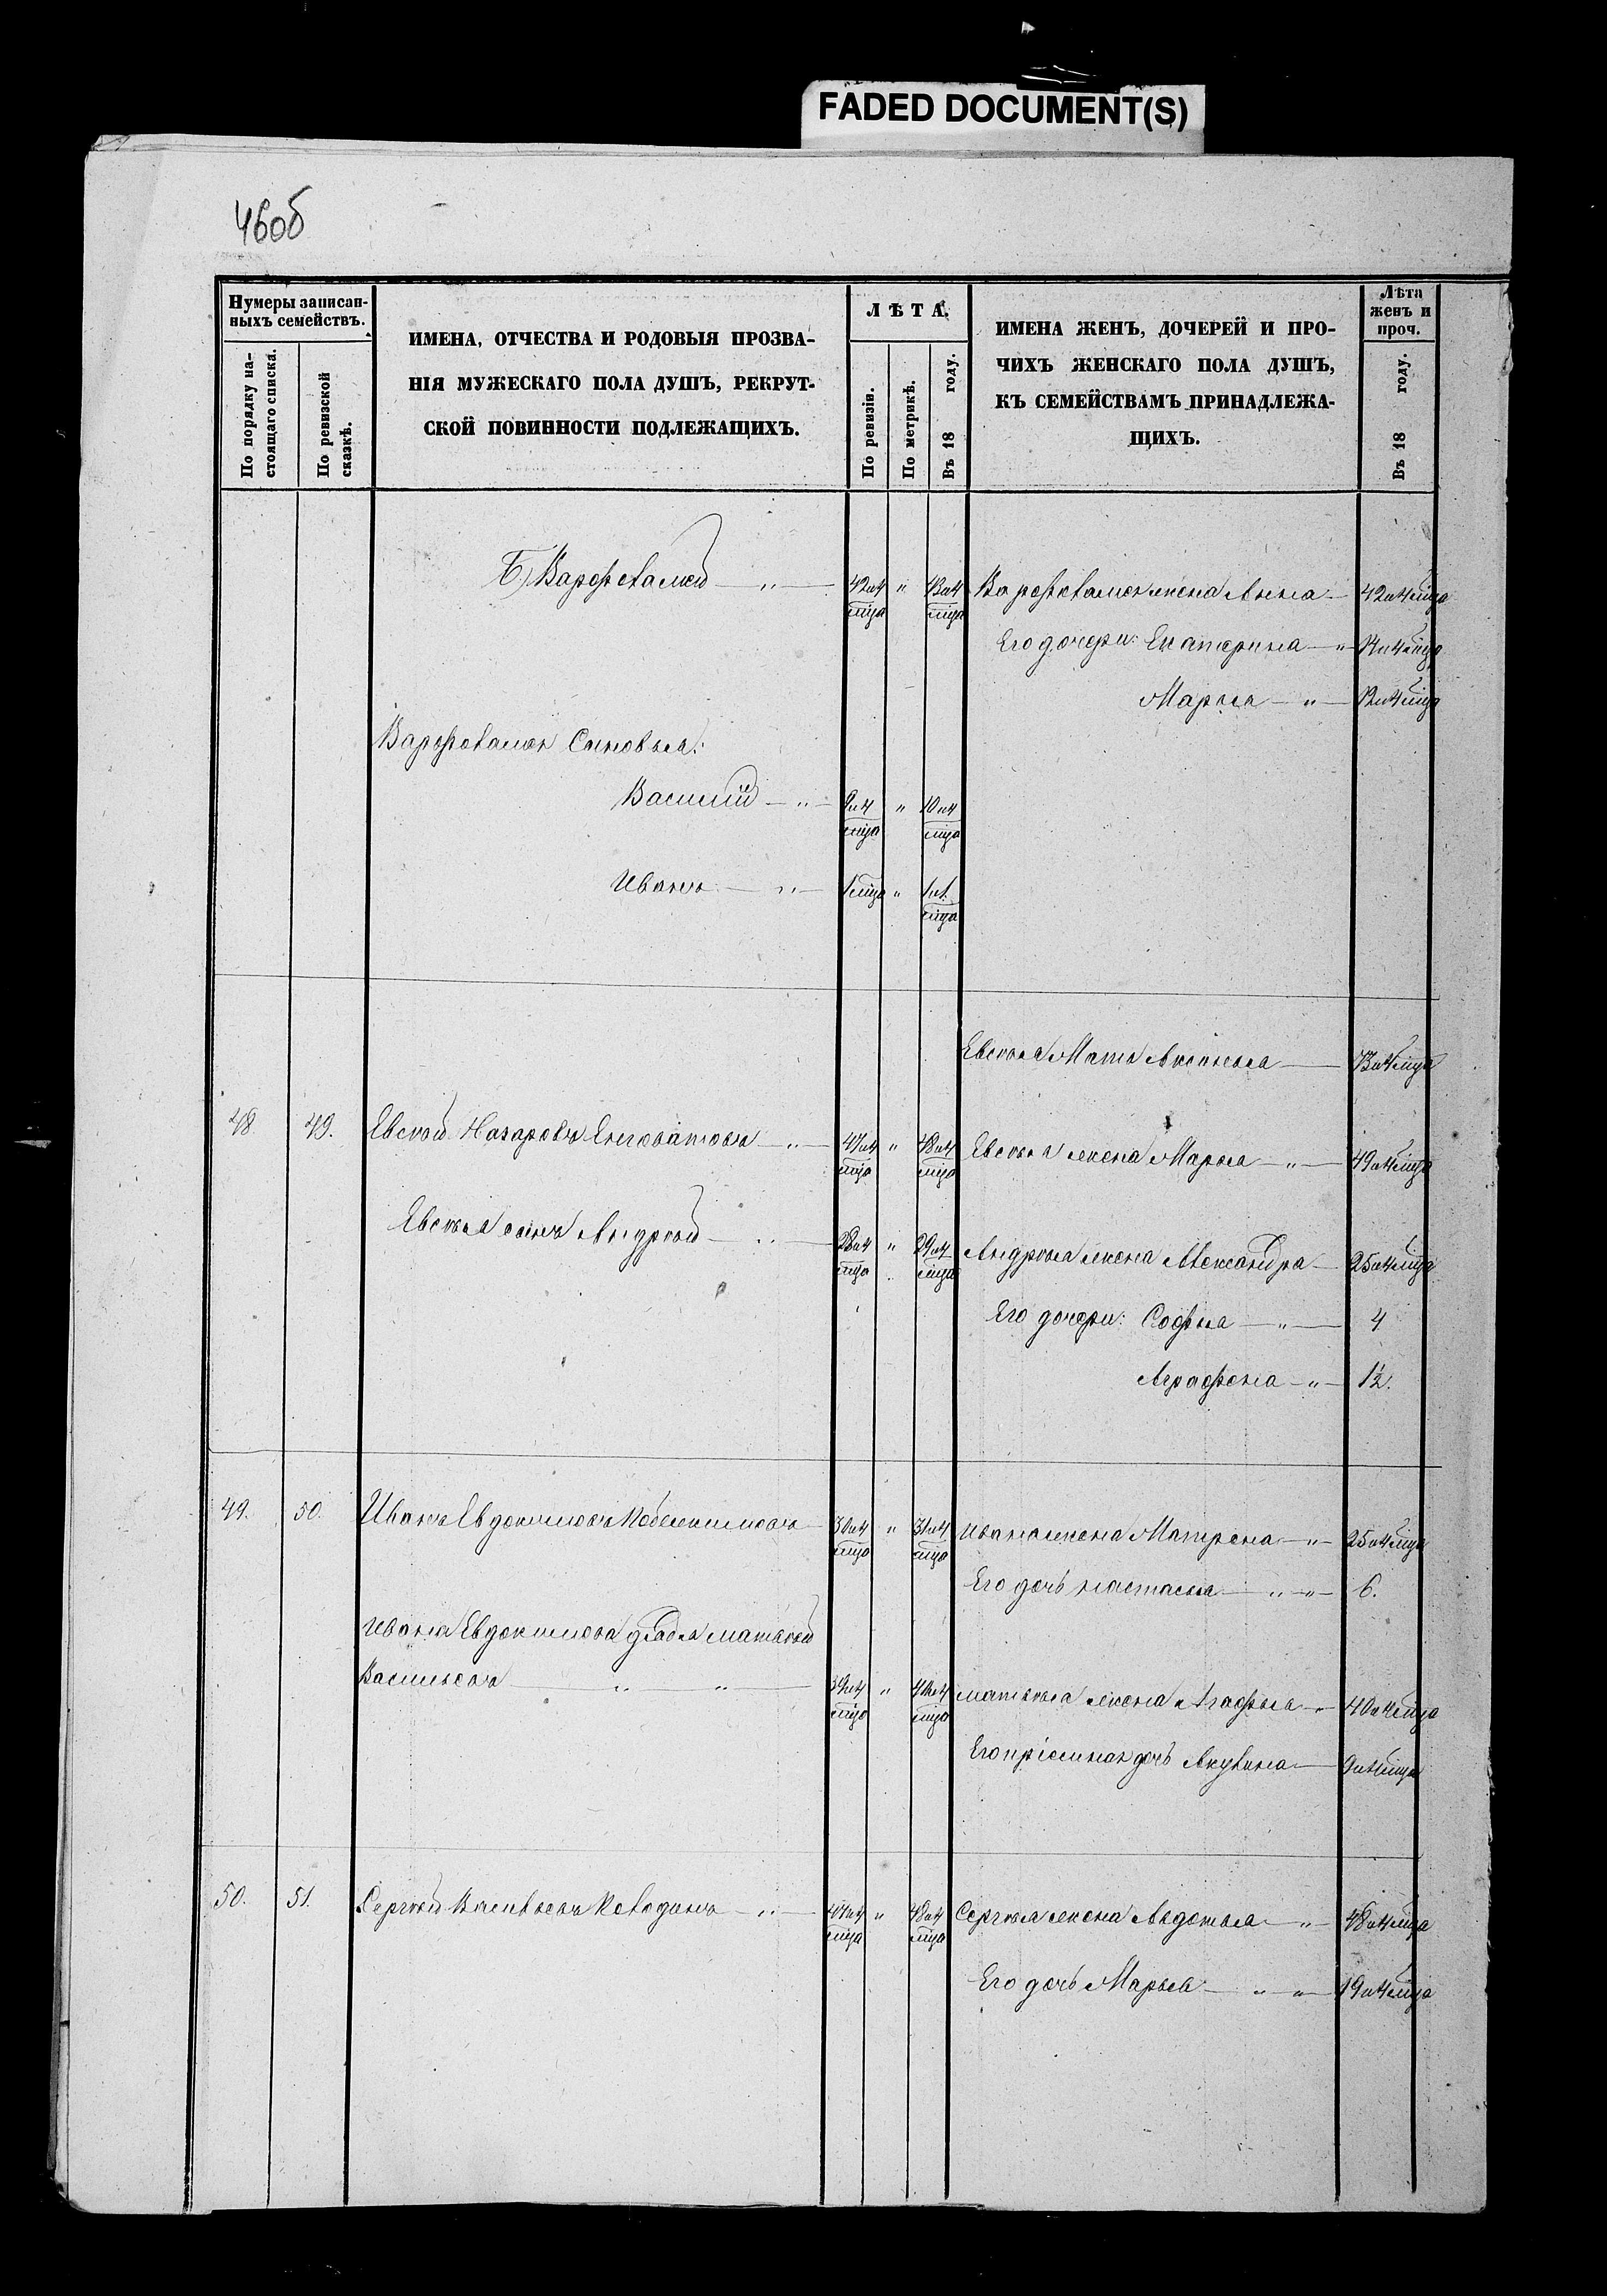 FADED DOCUMENT(S)
460б
Нумеры записан-
ныхъ семействъ.
По порядку на-
стоящаго списка.
По ревизской
сказкѣ.
ИМЕНА, ОТЧЕСТВА И РОДОВЫЯ ПРОЗВА-
НІЯ МУЖЕСКАГО ПОЛА ДУШЪ, РЕКРУТ-
СКОЙ ПОВИННОСТИ ПОДЛЕЖАЩИХЪ.
ЛѢТА.
По ревизіи.
По метрикѣ.
Въ 18 году.
ИМЕНА ЖЕНЪ, ДОЧЕРЕЙ И ПРО-
ЧИХЪ ЖЕНСКАГО ПОЛА ДУШЪ,
КЪ СЕМЕЙСТВАМЪ ПРИНАДЛЕЖА-
ЩИХЪ.
Лѣта
женъ и
проч.
Въ 18 году.
Б) Варфоламей — „ — 42 и 4 мца „ 43 и 4 мца Варфоламея жена Анна — 42 и 4 мца
Его дочери: Екатерина — „ 14 и 4 мца
Марья — „ — 12 и 4 мца
Варфоламея Сыновья:
Василій — „ — 9 и 4 мца „ 10 и 4 мца
Иванъ — „ — 1 мца „ 1 и 1 мца
Евсѣя Мать Аксинья — 73 и 4 мца
48 49. Евсѣй Назаровъ — „ — 47 и 4 мца „ 48 и 4 мца Евсѣя жена Марья — „ — 49 и 4 мца
Евсѣя сынъ Андрѣй — „ — 28 и 4 мца „ 29 и 4 мца Андрѣя жена Александра — 25 и 4 мца
Его дочери: Софья — „ — 4
Аграфена — „ — 1½.
49. 50. Иванъ Евдокимовъ — 30 и 4 мца „ 31 и 4 мца Ивана жена Матрена — „ — 25 и 4 мца
Его дочь Настасья — „ — „ — 6.
Ивана Евдокимова дядя Матвѣй
Васильевъ „ „ — 39 и 4 мца „ 40 и 4 мца Матвѣя жена Агафья — „ 40 и 4 мца
Его пріемная дочь Акулина — 9 и 4 мца
50. 51. Сергѣй Васильевъ — „ — 47 и 4 мца „ 48 и 4 мца Сергѣя жена Авдотья — „ — 48 и 4 мца
Его дочь Марья — „ — „ — 19 и 4 мца